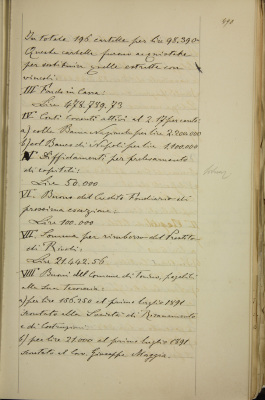 In totale 196 cartelle per Lire 98.390
Queste cartelle furono acquistate
per sostituire quelle estratte con
vincoli:
III Fondo in Cassa:
Lire 478.739,73
IV Conti Correnti attivi al 2.17 per cento:
a) colla Banca Nazionale per lire 2.200.000
b) col Banco di Napoli per lire 1.100.000
V per prelevamento
di capitali:
Lire 50.000
VI. Buono del Credito Fondiario di
prossima esazione:
Lire 100.000
VII. Somma per rimborso del Prestito
di Rivoli:
Lire 21.442.56
VIII Buoni del Comune di Torino, pagabili
alla sua Tesoreria:
a) per lire 156.250 al primo luglio 1891
scontato alla Società di Risanamento
e di Costruzioni:
b) per lire 21.000 al primo luglio 1891
scontato al Cav. Giuseppe Maggia.